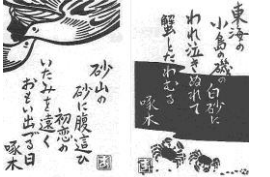 東海の
小島の磯の白砂に
われ泣きぬれて
蟹とたわむる
啄木
砂山の
砂に腹這ひ
初恋の
いたみを遠く
おもい出づる日
啄木